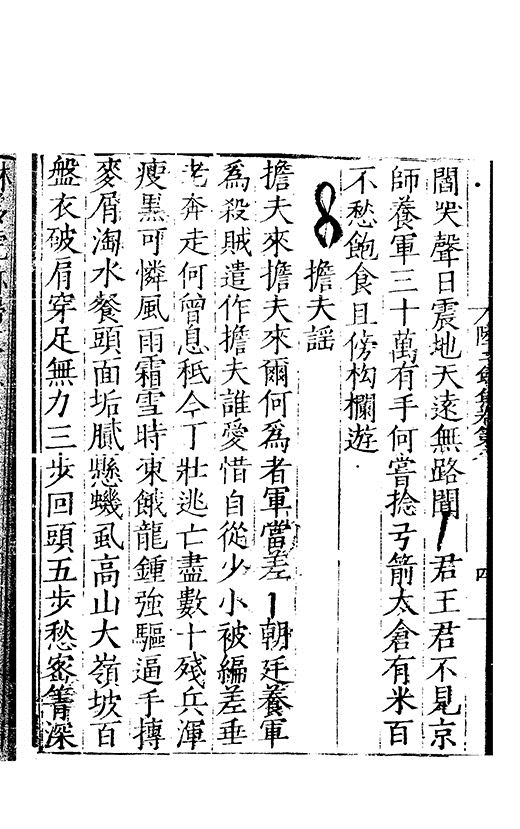 閭哭聲日震地天遠無路聞君王君不見京
師養軍三十萬有手何嘗捻弓箭太倉有米百
不愁飽食且傍构欄遊
擔夫謠
擔夫來擔夫來爾何爲者軍當差朝廷養軍
爲殺賊遣作擔夫誰愛惜自從少小被編差垂
老奔走何曾息秪今丁壯逃亡盡數十殘兵渾
瘦黑可憐風雨霜雪時凍餓龍鍾強驅逼手摶
麥屑淘水餐頭面垢膩懸蟣虱高山大嶺坡百
盤衣破肩穿足無力三步回頭五步愁密箐深
四